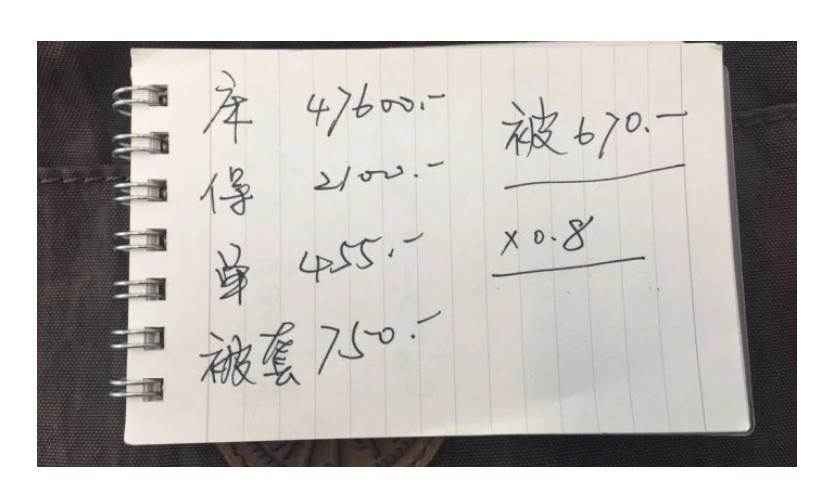 床 47600.-
保 2100.-
单 455.-
被套 750.-
被 670.-
× 0.8